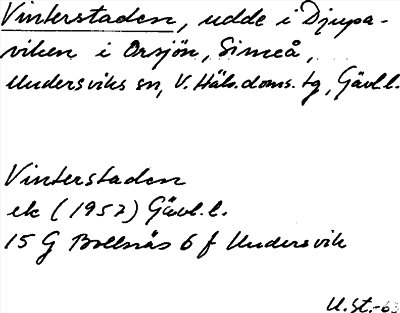 Vinterstaden, udde i Djupa-
viken i Orsjön, Simeå,
Undersviks sn, V. Häls. doms. tg, Gävl. l.
Vinterstaden
ek (1957) Gävl. l.
15 G Bollnäs 6 f Undersvik
U.St.-63